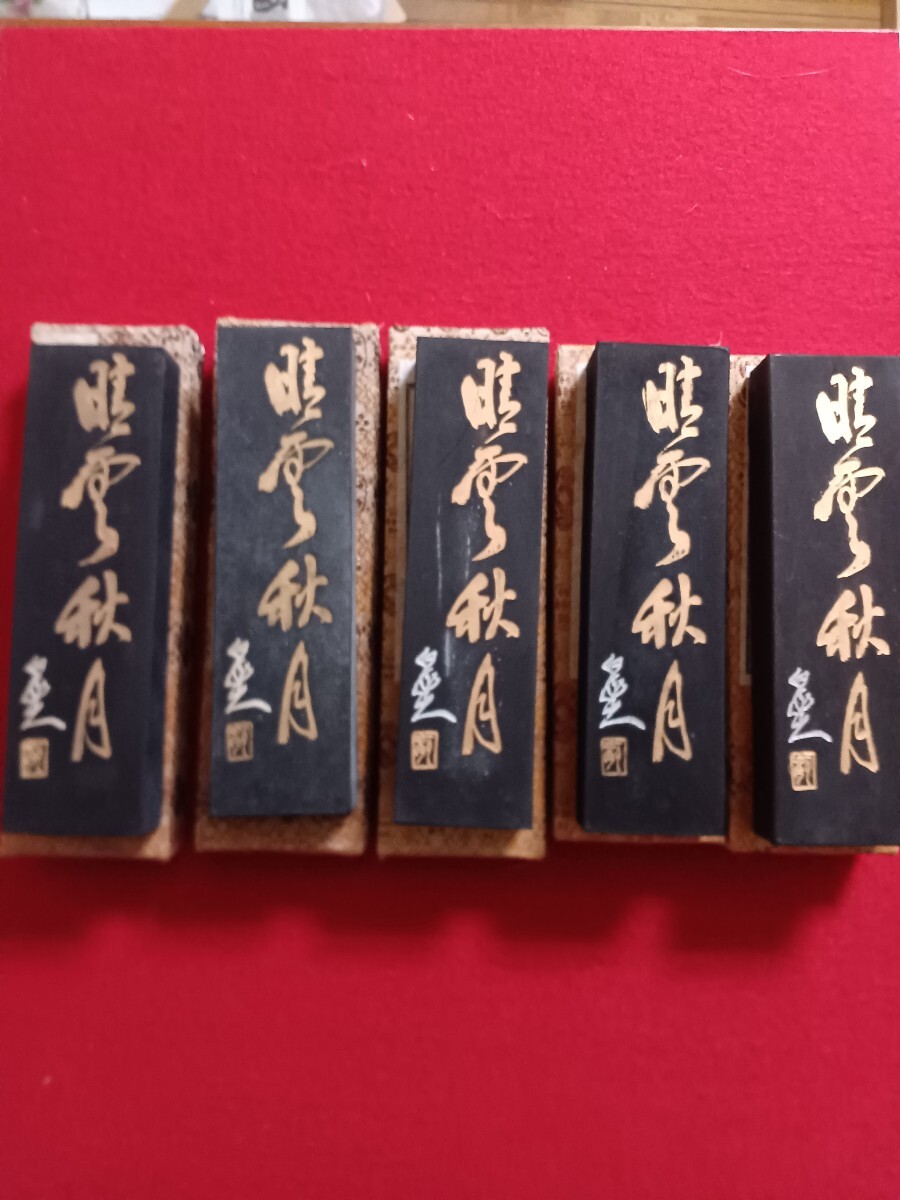 晴雲秋月
晴雲秋月
晴雲秋月
晴雲秋月
晴雲秋月